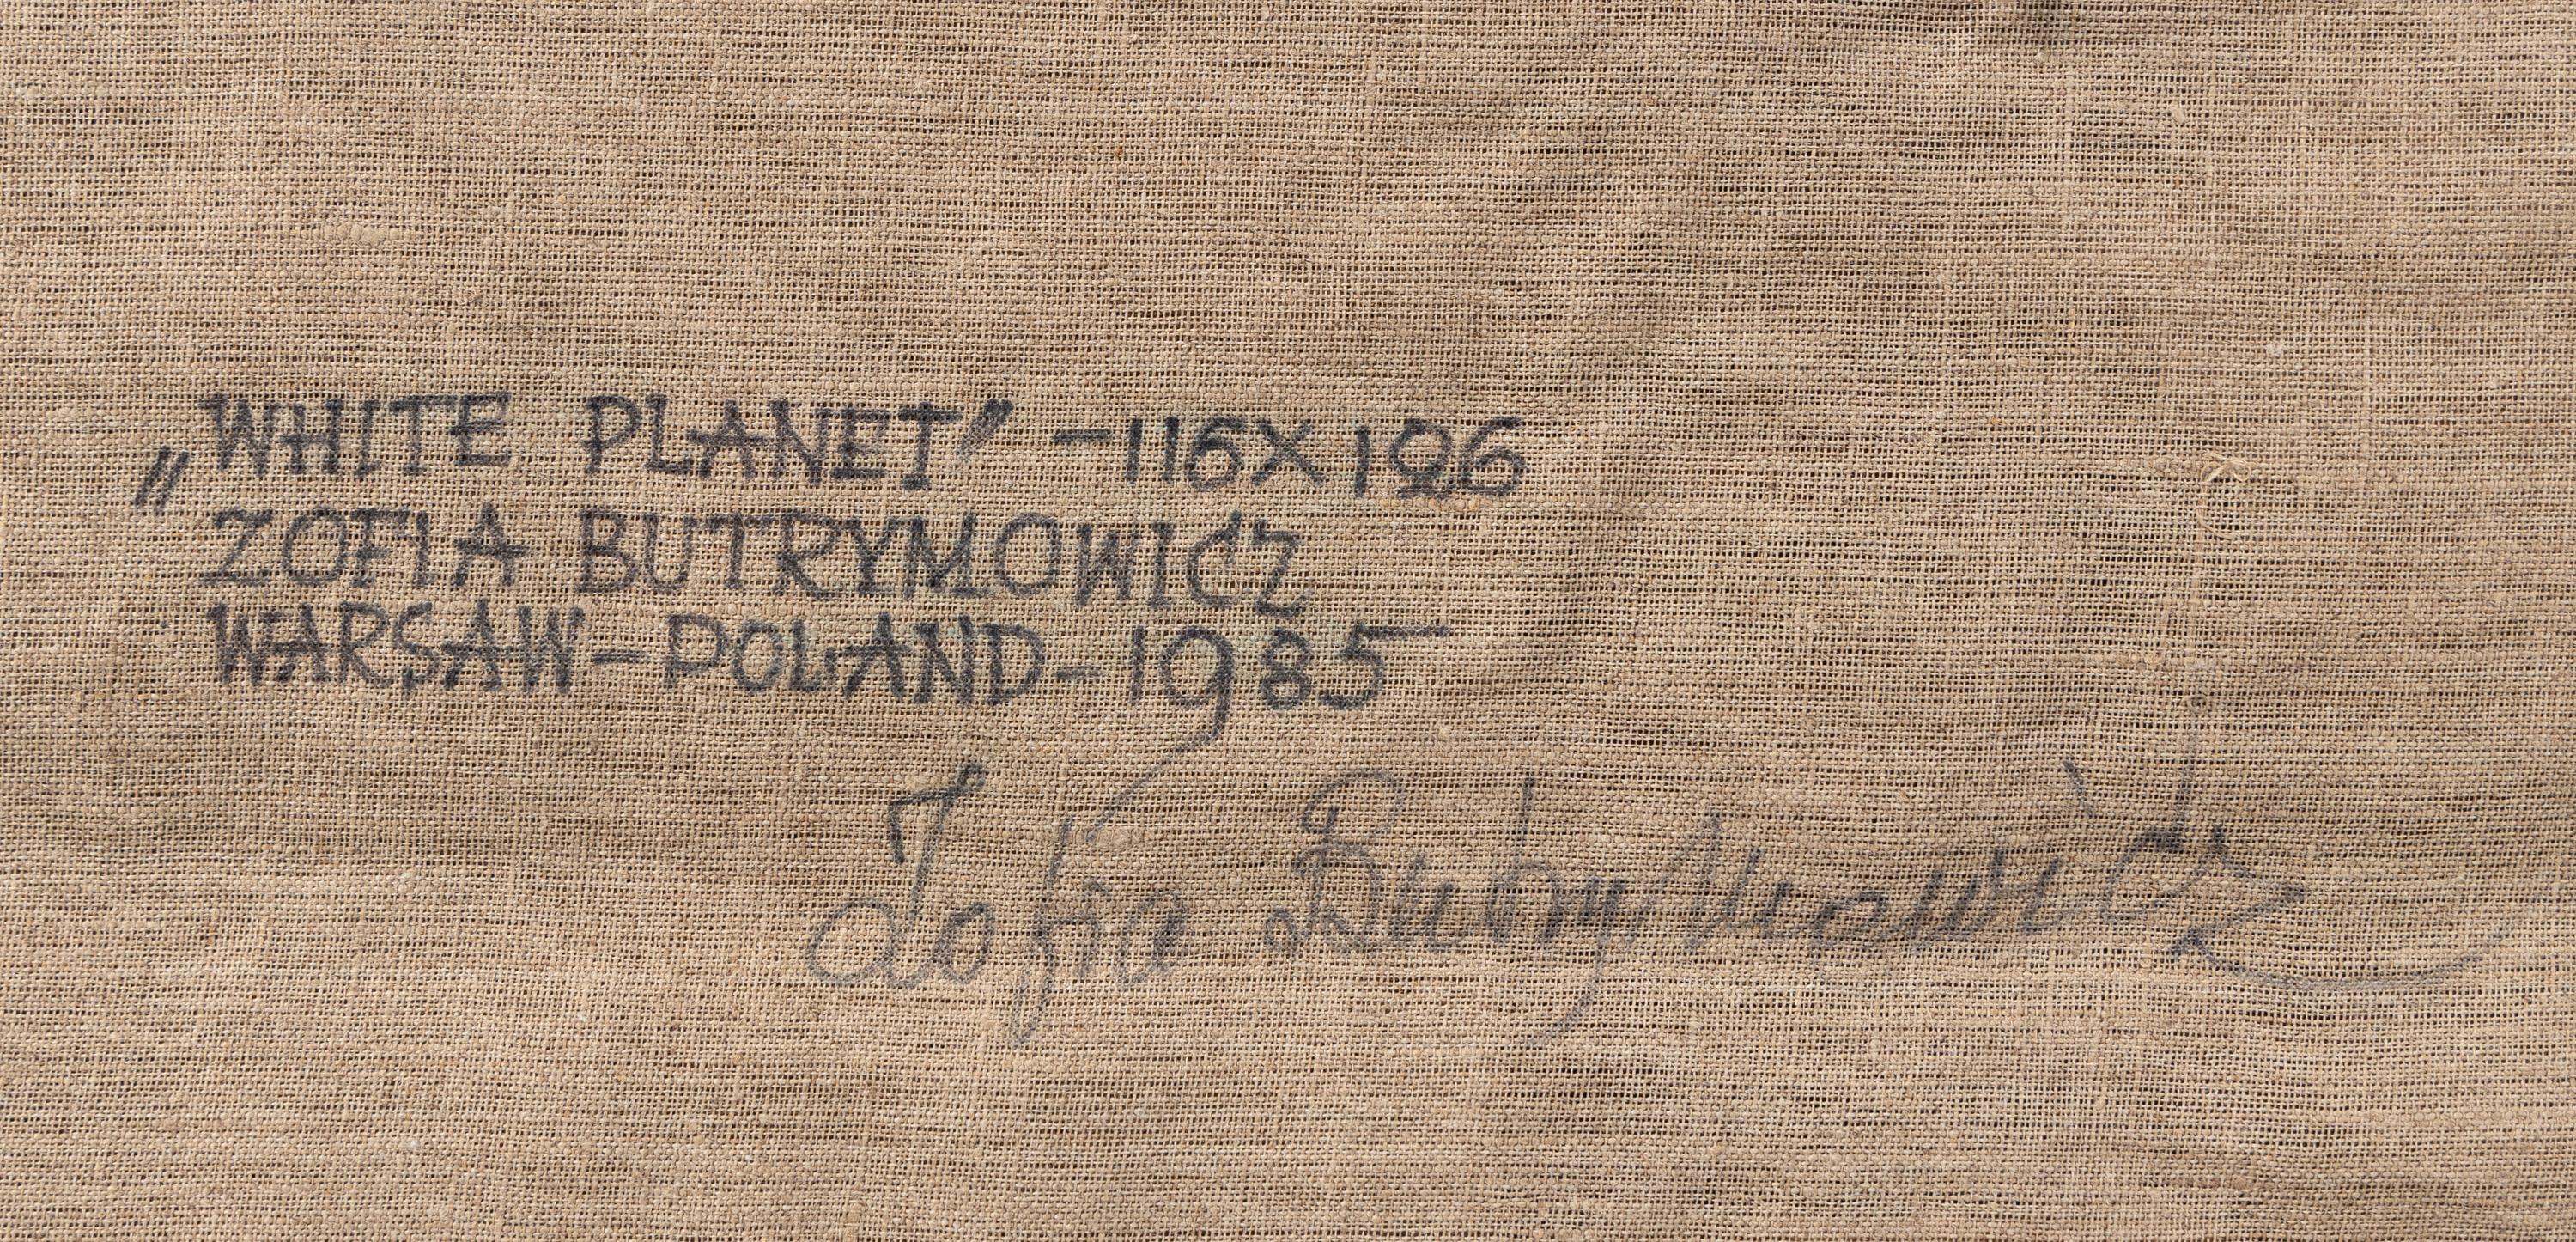 „WHITE PLANET" -116X126
ZOFIA BUTRYMOWICZ
WARSAW-POLAND-1985
Zofia Butrymowicz